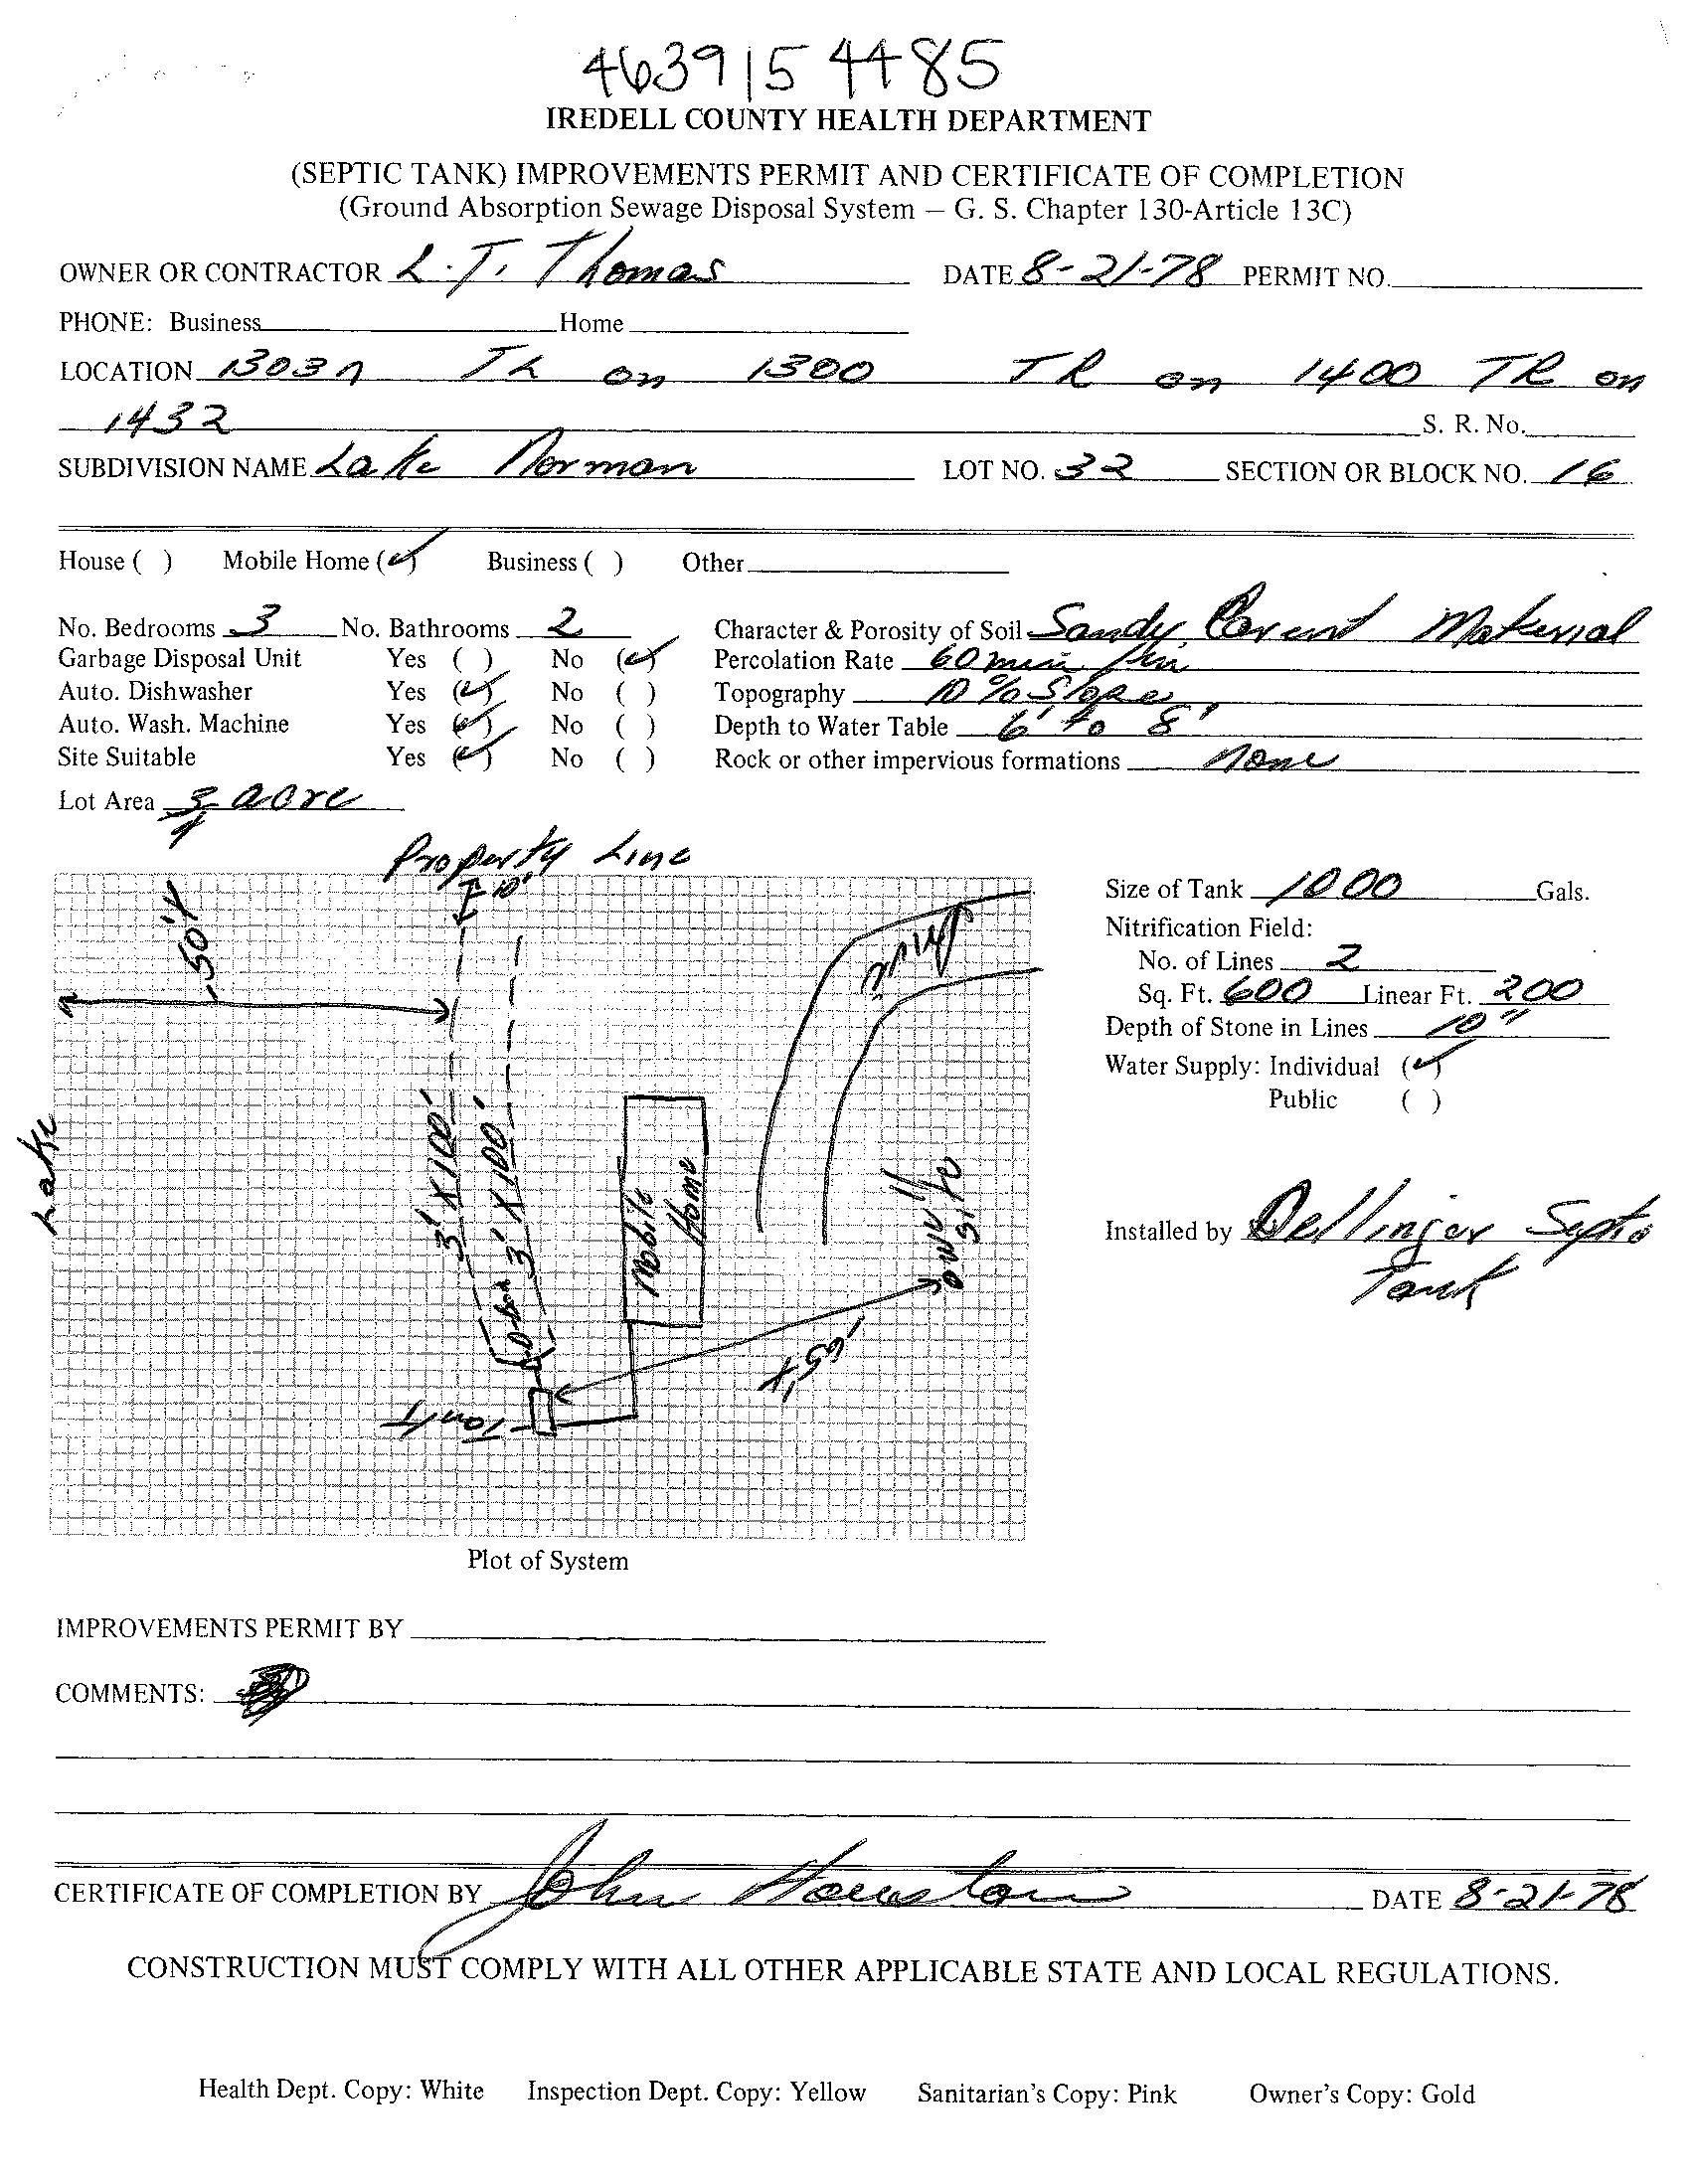 4639154485
IREDELL COUNTY HEALTH DEPARTMENT
(SEPTIC TANK) IMPROVEMENTS PERMIT AND CERTIFICATE OF COMPLETION
(Ground Absorption Sewage Disposal System – G. S. Chapter 130-Article 13C)
OWNER OR CONTRACTOR L.T. Thomas DATE 8-21-78 PERMIT NO.
PHONE: Business Home
LOCATION 1303 TL on 1300 TR on 1400 TR on
1432 S. R. No.
SUBDIVISION NAME Lake Norman LOT NO. 32 SECTION OR BLOCK NO. 16
House ( ) Mobile Home (✓) Business ( ) Other
No. Bedrooms 3 No. Bathrooms 2 Character & Porosity of Soil Sandy Parent Material
Garbage Disposal Unit Yes ( ) No (✓) Percolation Rate 60 min/in
Auto. Dishwasher Yes (✓) No ( ) Topography 10% Slope
Auto. Wash. Machine Yes (✓) No ( ) Depth to Water Table 6' to 8'
Site Suitable Yes (✓) No ( ) Rock or other impervious formations None
Lot Area 3/4 acre
Property Line
10'
50'±
Drive
Lake
3' X 100'
3' X 100'
D-box
Mobile
Home
Well
65'±
Tank
Size of Tank 1000 Gals.
Nitrification Field:
No. of Lines 2
Sq. Ft. 600 Linear Ft. 200
Depth of Stone in Lines 10"
Water Supply: Individual (✓)
Public ( )
Installed by Dellinger Septic
Tank
Plot of System
IMPROVEMENTS PERMIT BY
COMMENTS:
CERTIFICATE OF COMPLETION BY John Houston DATE 8-21-78
CONSTRUCTION MUST COMPLY WITH ALL OTHER APPLICABLE STATE AND LOCAL REGULATIONS.
Health Dept. Copy: White Inspection Dept. Copy: Yellow Sanitarian's Copy: Pink Owner's Copy: Gold